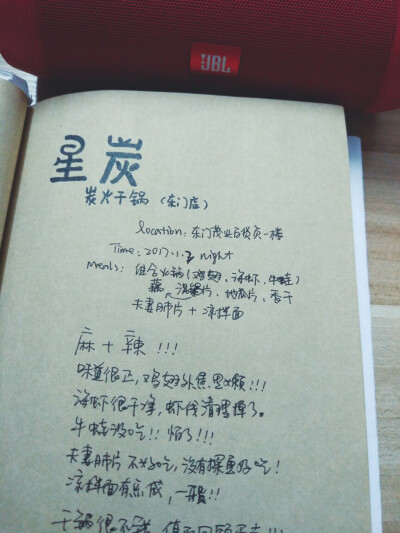 JBL
星炭
炭火干锅（东门店）
location: 东门茂业百货负一楼
Time: 2017.1.2 night
meals: 组合火锅(鸡翅、海虾、牛蛙)
藕片、地瓜片、香干
夫妻肺片 + 凉拌面
麻 + 辣 !!!
味道很正,鸡翅外焦里嫩!!!
海虾很干净,虾线清理掉了。
牛蛙没吃!! 怕了!!!
夫妻肺片 不好吃,没有探鱼好吃!
凉拌面有点咸,一般!!
干锅很不错